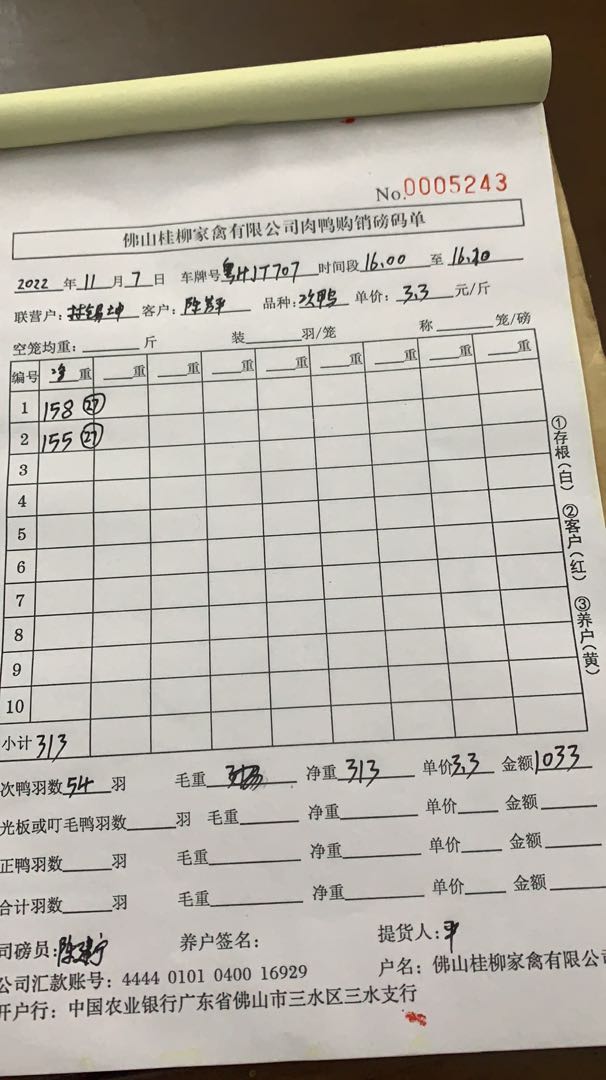 No.0005243
佛山桂柳家禽有限公司肉鸭购销磅码单
2022 年 11 月 7 日 车牌号 粤H1T707 时间段 16.00 至 16.20
联营户: 客户: 陈 品种: 次鸭 单价: 3.3 元/斤
空笼均重: 斤 装 羽/笼 称 笼/磅
编号 净重 重 重 重 重 重 重 重 重
1 158 27
2 155 27
3
4
5
6
7
8
9
10
小计 313
①存根(白) ②客户(红) ③养户(黄)
次鸭羽数 54 羽 毛重 净重 313 单价 3.3 金额 1033
光板或叮毛鸭羽数 羽 毛重 净重 单价 金额
正鸭羽数 羽 毛重 净重 单价 金额
合计羽数 羽 毛重 净重 单价 金额
司磅员: 陈建宁 养户签名: 提货人: 平
公司汇款账号: 4444 0101 0400 16929 户名: 佛山桂柳家禽有限公
开户行: 中国农业银行广东省佛山市三水区三水支行